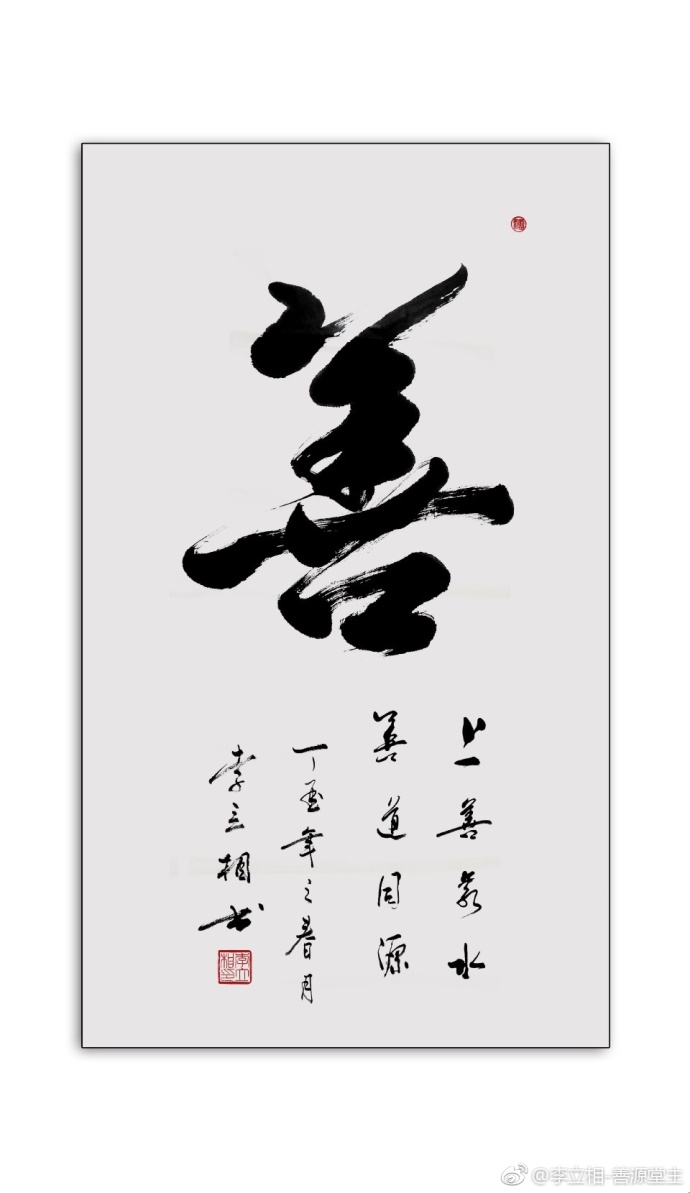 善
上善若水
善道同源
丁酉年之暑月
李立相书
@李立相-善源堂主